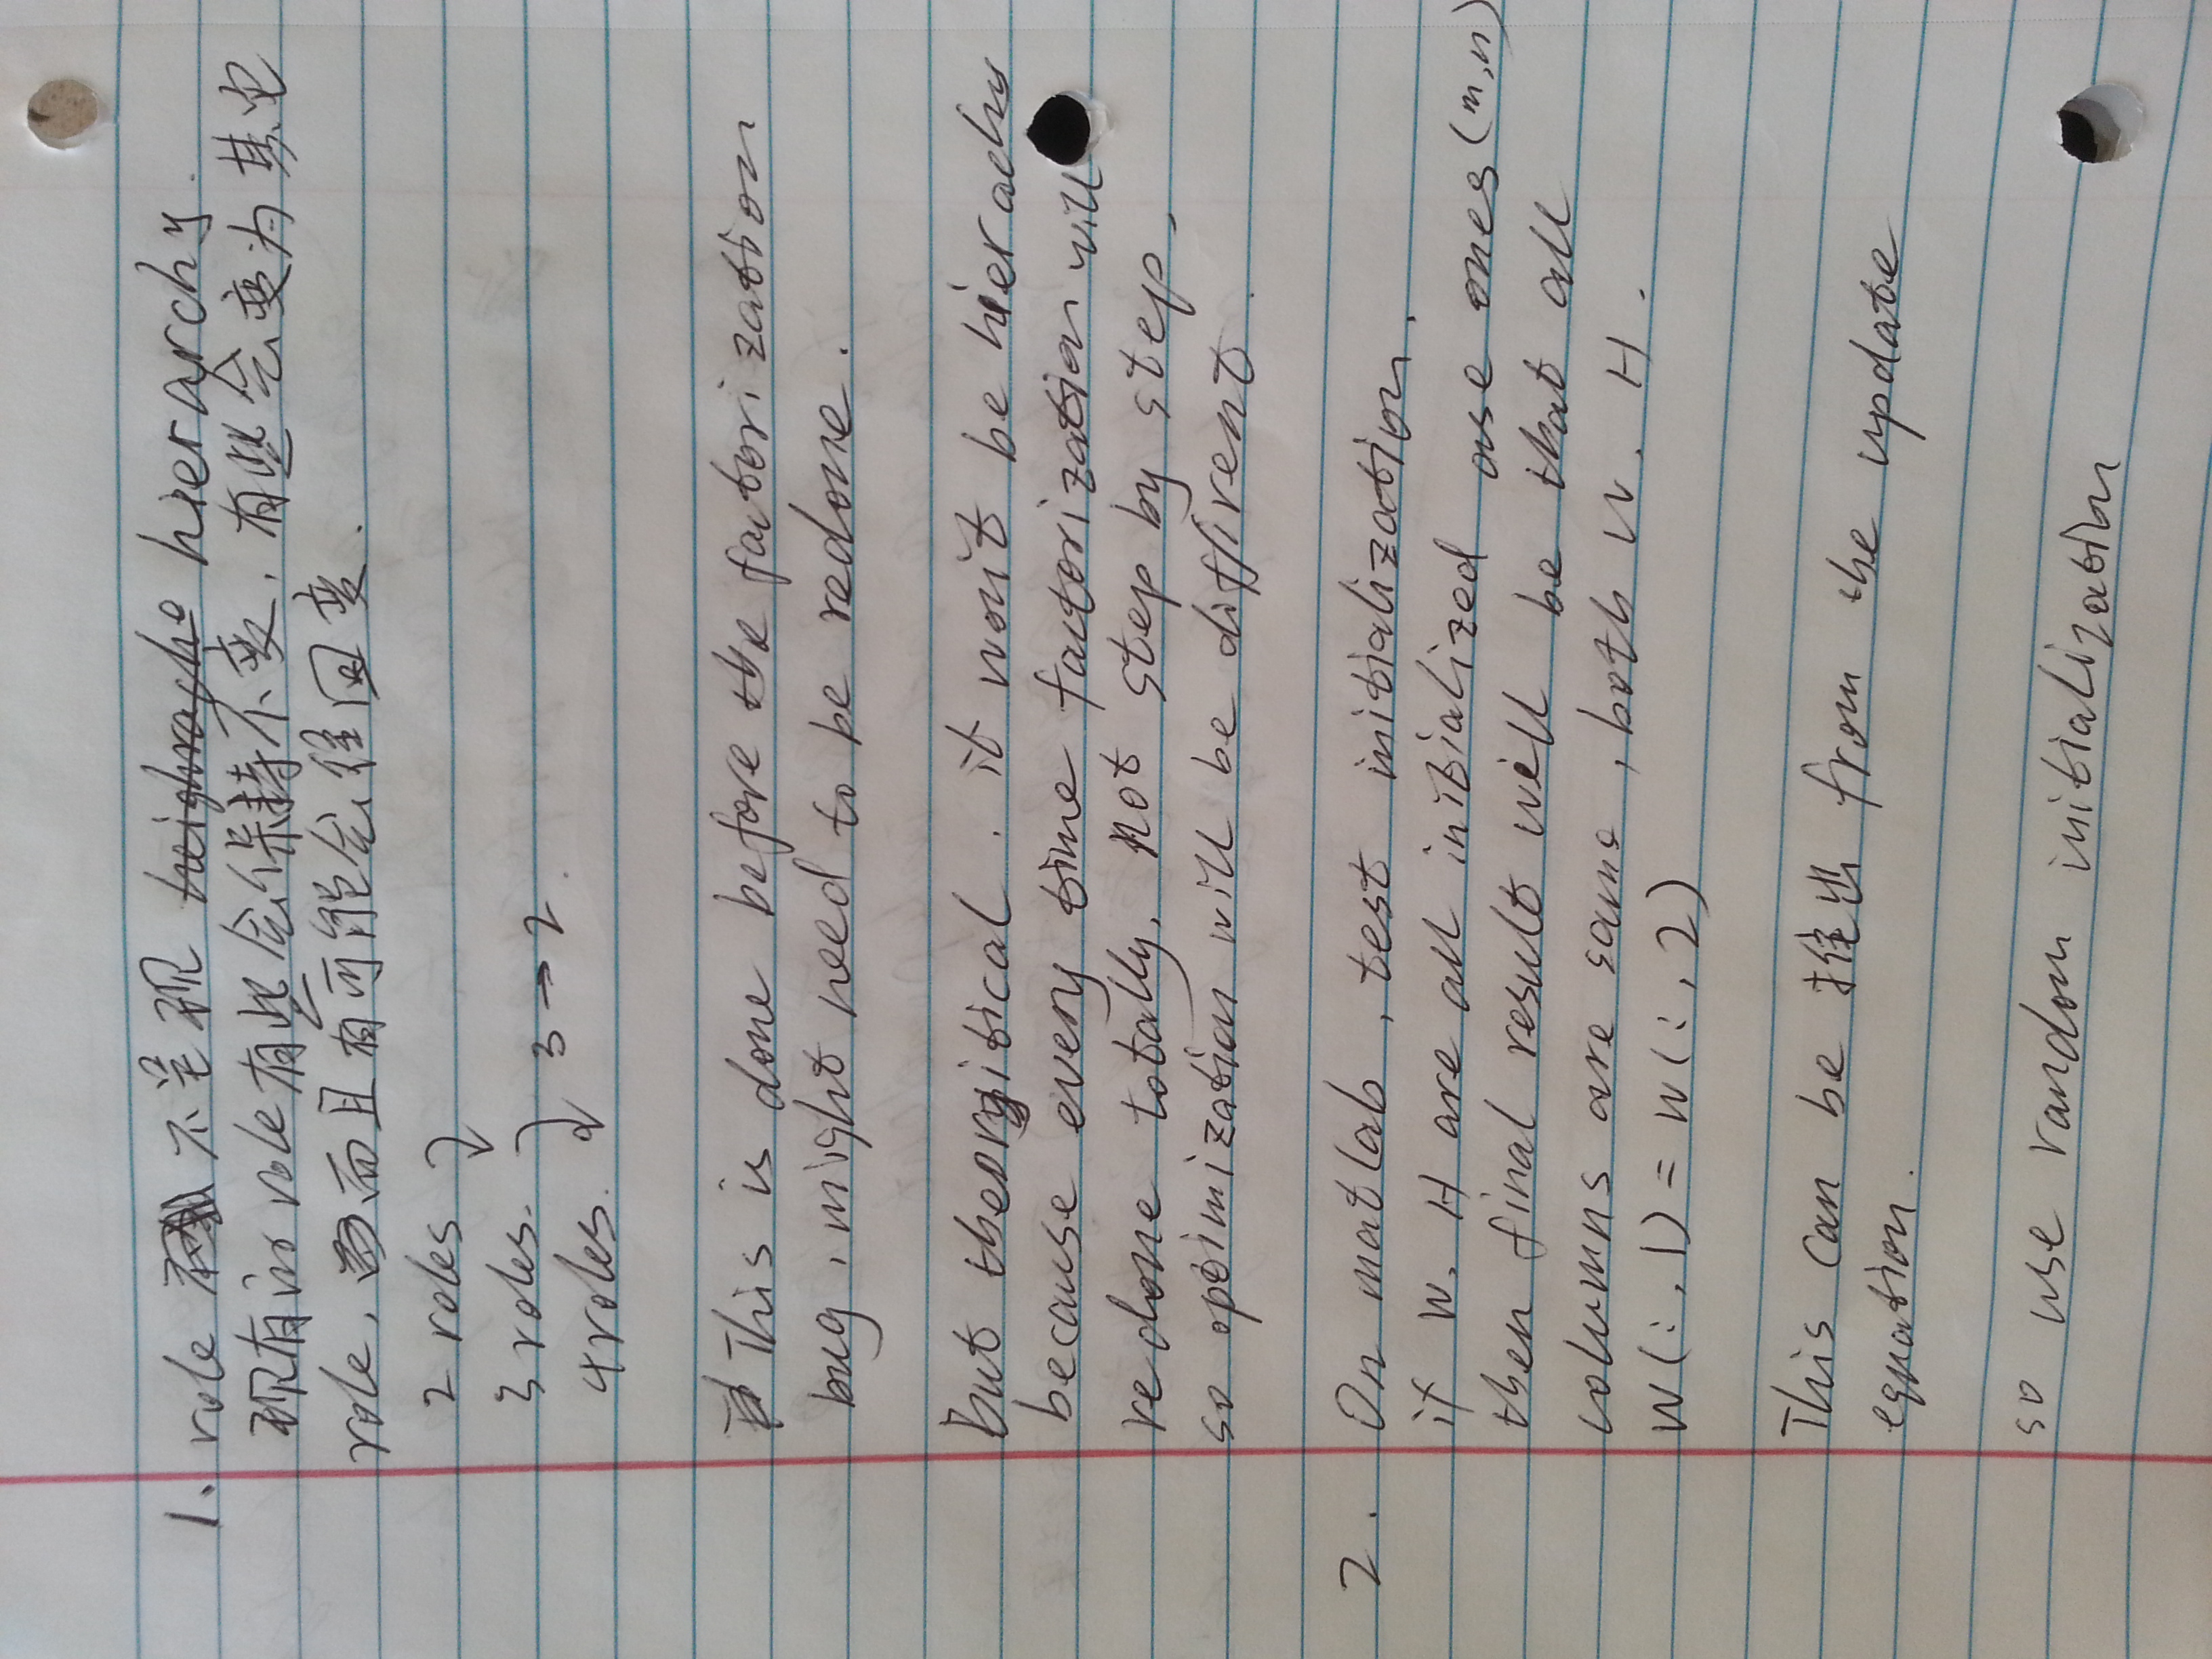 1. role 不呈现 hierarchy.
现有的 role 有些会保持不变, 有些会变为其它
role, 而且有可能会往回变.
2 roles
3 roles.
3 → 2.
4 roles.
This is done before the factorization
bug, might need to be redone.
But theorgitical. it won't be hierachy
because every time factorization will
redone totally, not step by step,
so optimization will be diffirent.
2. On matlab, test initialization.
if W. H are all initialized use ones(m,n)
then final result will be that all
columns are same, both W. H.
W(:,1) = W(:,2)
This can be 推出 from the update
equation.
so use random initialization